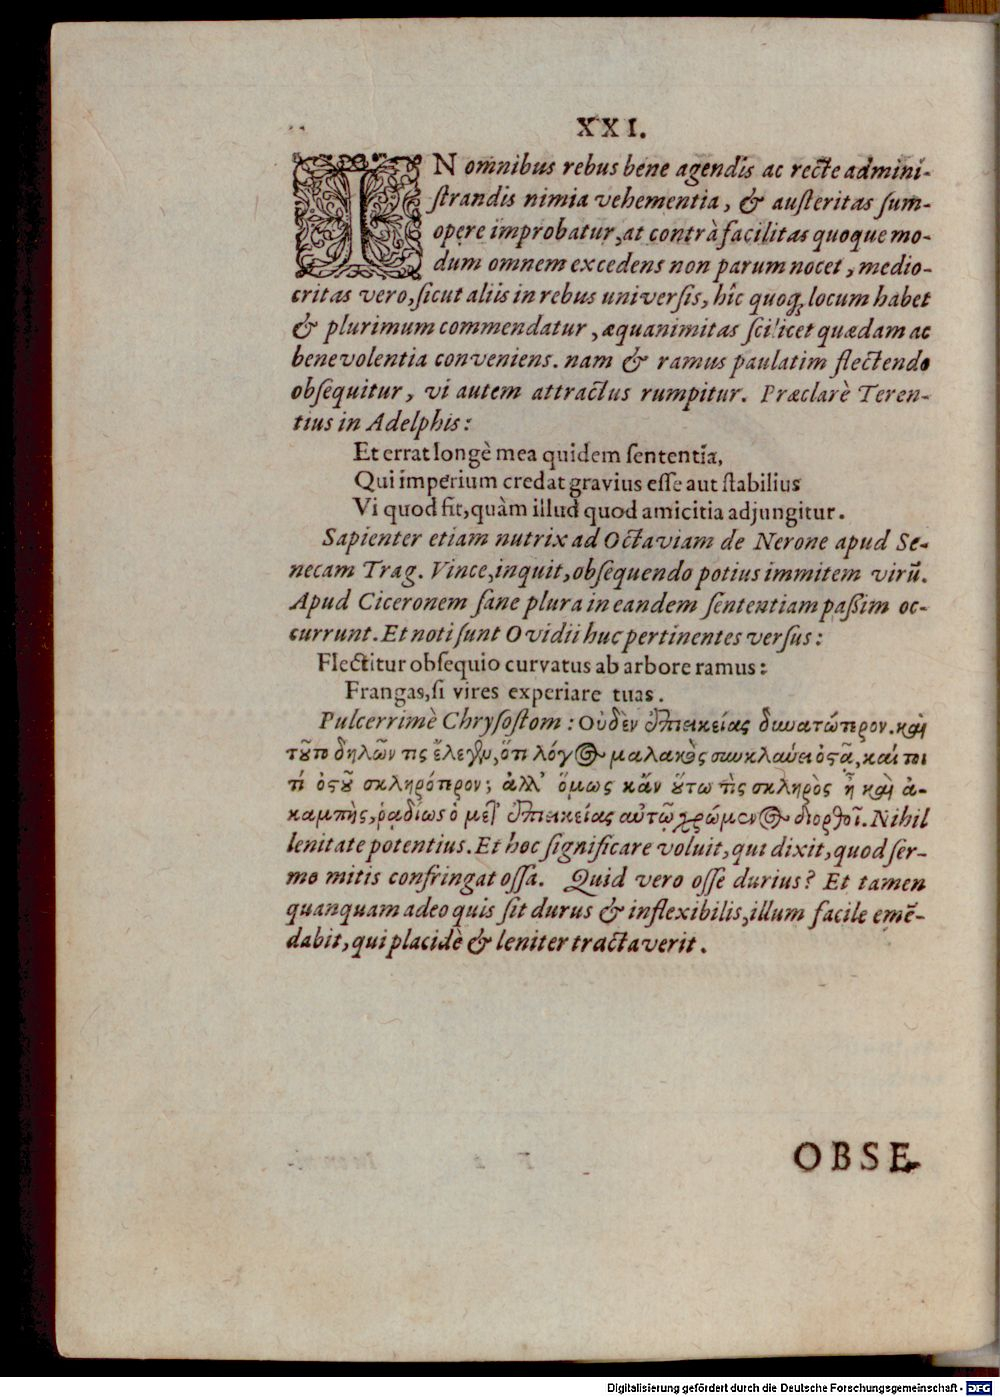 XXI.
IN omnibus rebus bene agendis ac recte admini-
strandis nimia vehementia, & austeritas sum-
opere improbatur, at contrà facilitas quoque mo-
dum omnem excedens non parum nocet, medio-
critas vero, sicut aliis in rebus universis, hîc quoqꝫ locum habet
& plurimum commendatur, æquanimitas scilicet quædam ac
benevolentia conveniens. nam & ramus paulatim flectendo
obsequitur, vi autem attractus rumpitur. Præclarè Teren-
tius in Adelphis:
Et errat longè mea quidem sententia,
Qui imperium credat gravius esse aut stabilius
Vi quod fit, quàm illud quod amicitia adjungitur.
Sapienter etiam nutrix ad Octaviam de Nerone apud Se-
necam Trag. Vince, inquit, obsequendo potius immitem virũ.
Apud Ciceronem sane plura in eandem sententiam passim oc-
currunt. Et noti sunt Ovidii huc pertinentes versus:
Flectitur obsequio curvatus ab arbore ramus:
Frangas, si vires experiare tuas.
Pulcerrimè Chrysostom: Οὐδὲν ἐπιεικείας δυνατώτερον. καὶ
τοῦτο δηλῶν τις ἔλεγεν, ὅτι λόγος μαλακὸς συγκλαύει ὀστᾶ, καί τοι
τί ὀστοῦ σκληρότερον; ἀλλ' ὅμως κἄν οὕτω τὶς σκληρὸς ἦ καὶ ἀ-
καμπὴς, ῥᾳδίως ὁ μετ' ἐπιεικείας αὐτῷ χρώμενος διορθοῖ. Nihil
lenitate potentius. Et hoc significare voluit, qui dixit, quod ser-
mo mitis confringat ossa. Quid vero osse durius? Et tamen
quanquam adeo quis sit durus & inflexibilis, illum facile emẽ-
dabit, qui placidè & leniter tractaverit.
OBSE-
Digitalisierung gefördert durch die Deutsche Forschungsgemeinschaft - DFG